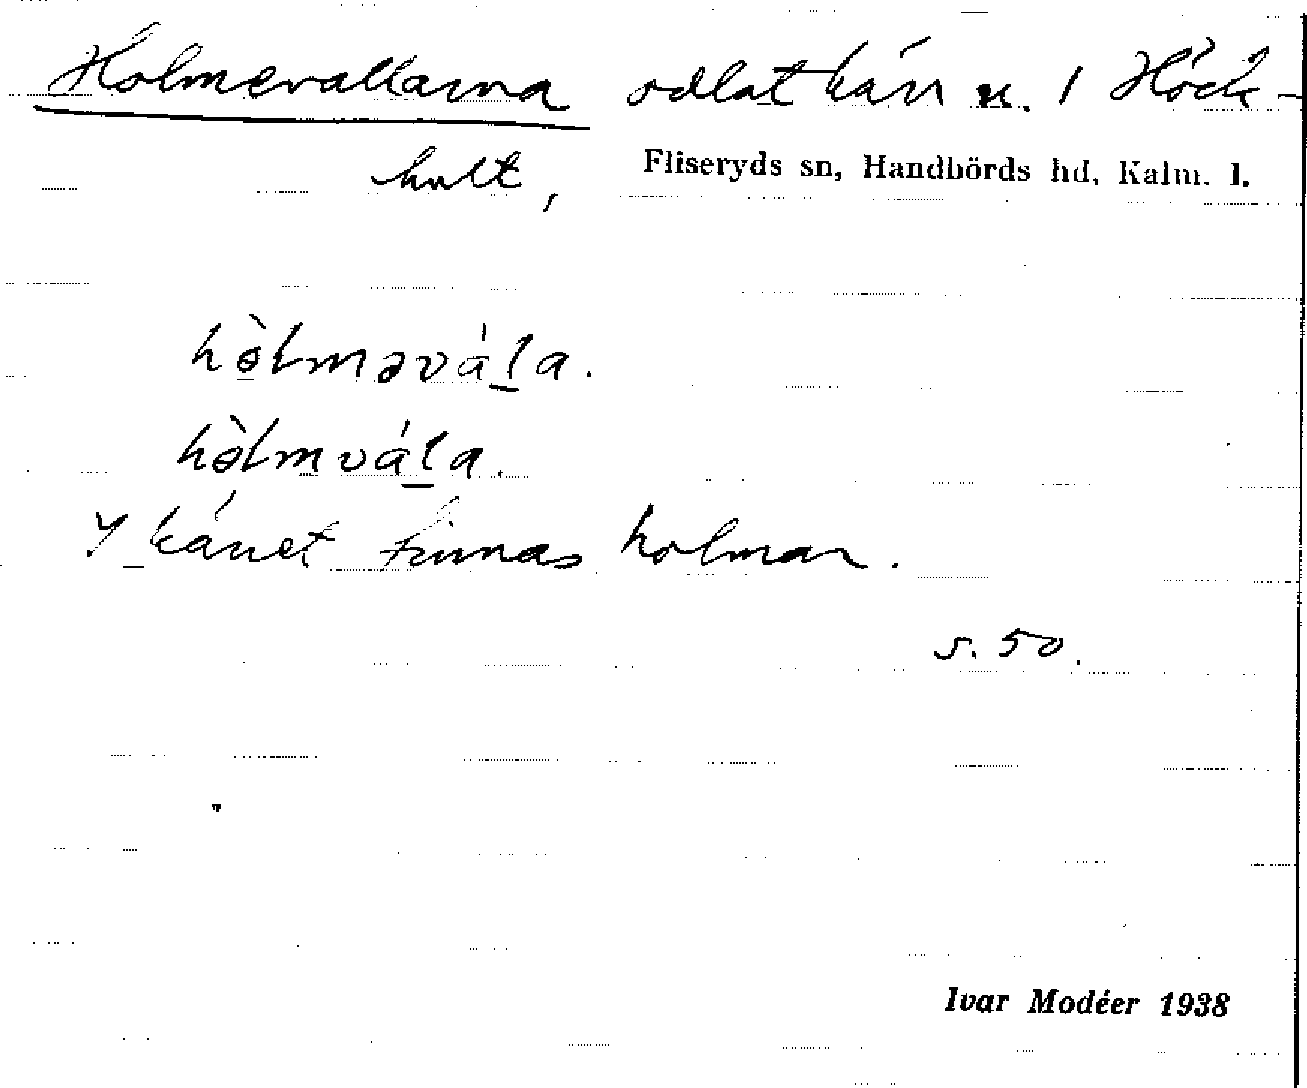 Holmevallarna odlat kärr u. 1 Höck-
hult, Fliseryds sn, Handbörds hd, Kalm. l.
hòlməváḻa.
hòlmváḻa.
I kärret finnas holmar.
s. 50.
Ivar Modéer 1938